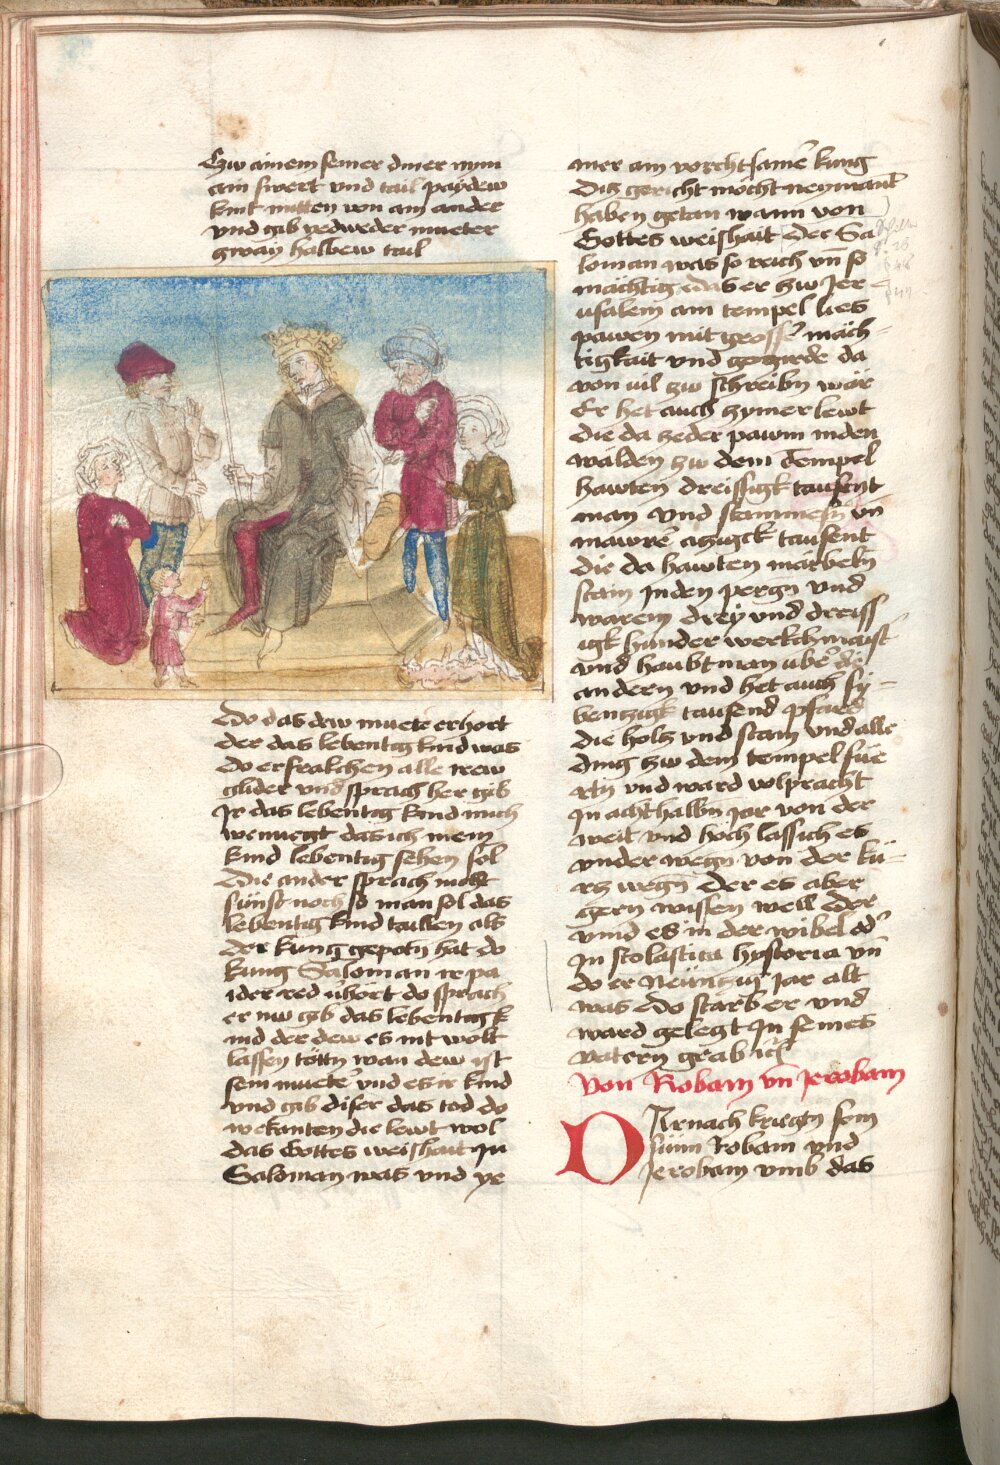 Zw ainem seiner diner nym
ain swert und tail paydew
kint mitten von ain ander
und gib yedweder mueter
zway halbew tail
Do das dew muet erhort
der das lebentig kind was
do erfralchen alle irew
glider und sprach her gib
Ir das lebentig kind mich
wenuegt das ich mein
kind lebentig sehen sol
Die ander sprach nicht
sünst noch so man sol das
lebentig kind taillen als
der küng gepotn hat do
küng Saloman ir pa
ider red uhört do sprach
er nw geb das lebentig k
ind der dew es nit wolt
lassen tötn wan dew ist
sein muete und es ir kind
und gib diser das tod do
wekanten die lewt wol
das Gottes weishait In
Saloman was und ye
mer ain vorchtsame küng
Ditz gericht mocht neymant
haben getan wann von
Gottes weishait Der Sa
loman was so reich un so
mächtig das er zw Jer
usalem ain tempel lies
pawen mit grosse mäch=
tigkait und gezirde da
von vil zw schreibn wär
Er het auch zymerlewt
die da zeder pawm in den
wälden zw dem Tempel
hawten dreissigk tausent
man Und stainmeczn un
mawre achczgk tausent
die da hawten märbeln
stain In den pergn und
waren drey und dreiss
igk hunder werkchmaist
und haubtman ube die
andern und het auch sy=
benczigk tausend pfard
die holz und stain und alle
ding zw dem tempel füe
rtn und ward volpracht
In acht halbn Jar von der
weil und hoch lass ich es
under wegn von der kü=
rz wegn Der es aber
gern wissen well Der
vind es in der wibel od
In scolastica hystoria un
do er Neünczig Jar alt
was Do starb er und
ward gelegt In seines
vatern grab etc
Von Robam un Jerobam
DArnach kriegtn sein
sünn Robam und
Jerobam umb das